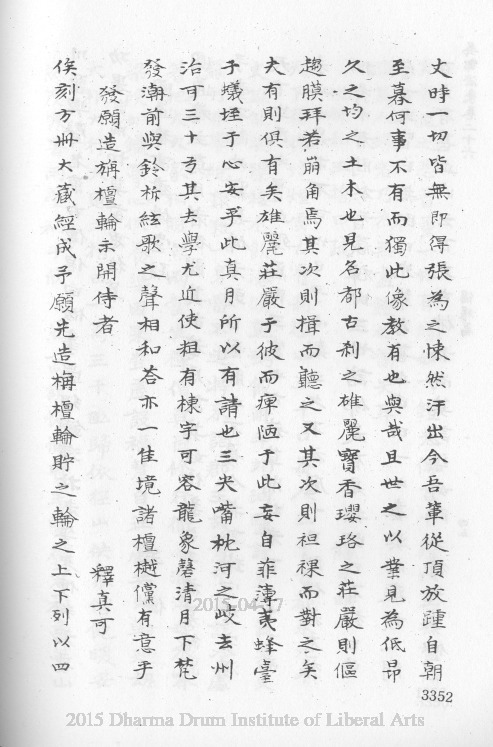 丈時一切皆無即得張為之悚然汗出今吾輩從頂放踵自朝
至暮何事不有而獨此像教有也與哉且世之以業見為低昂
久之均之土木也見名都古刹之雄麗寶香瓔珞之莊嚴則傴
趨膜拜若崩角焉其次則揖而聽之又其次則袒裸而對之矣
夫有則俱有矣雄麗莊嚴于彼而痺陋于此妄自菲薄夷蜂臺
于蟻垤于心安乎此真月所以有請也三夬嘴枕河之歧去州
治可三十弓其去學尤近使粗有棟宇可容龍象磬清月下梵
發潮前與鈴柝絃歌之聲相和荅亦一佳境諸檀樾儻有意乎
發願造旃檀輪示開侍者
釋真可
俟刻方冊大藏經成予願先造栴檀輪貯之輪之上下列以四
3352
2015-04-17
2015 Dharma Drum Institute of Liberal Arts